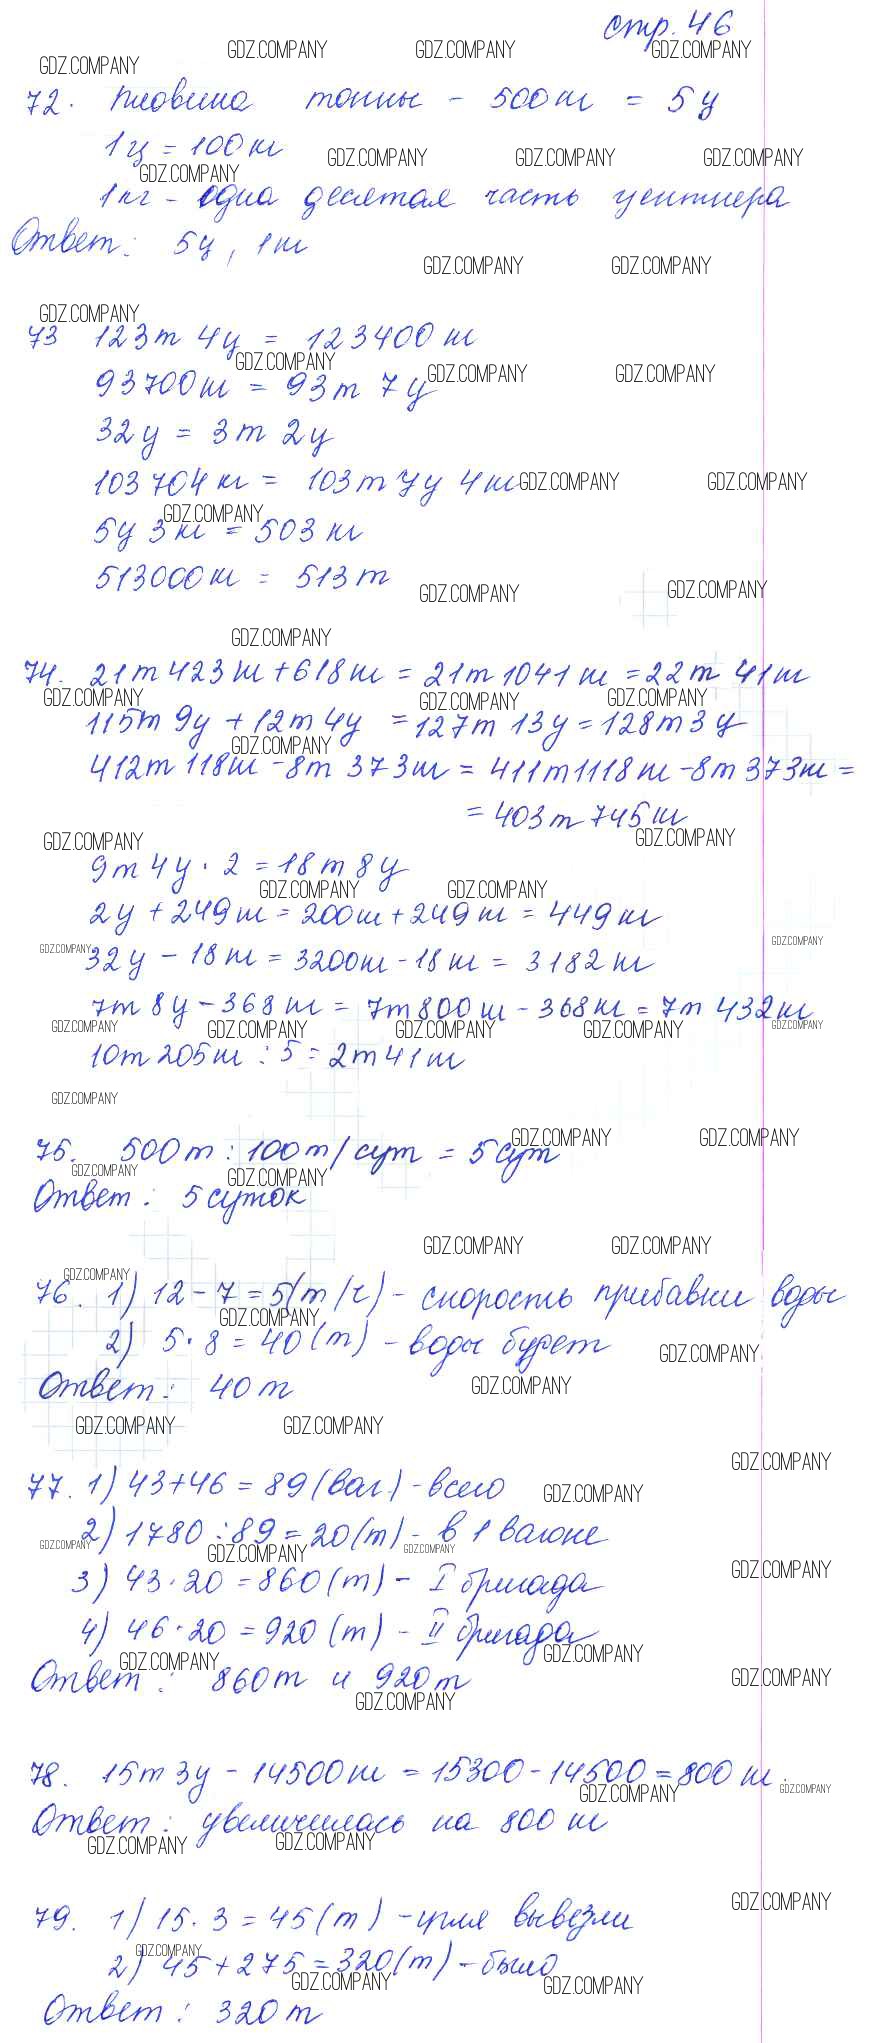 стр. 46
72. Половина тонны - 500 кг = 5 ц
1 ц = 100 кг
1 кг - одна десятая часть центнера
Ответ: 5 ц, 1 кг
73 123 т 4 ц = 123400 кг
93700 кг = 93 т 7 ц
32 ц = 3 т 2 ц
103704 кг = 103 т 7 ц 4 кг
5 ц 3 кг = 503 кг
513000 кг = 513 т
74. 21 т 423 кг + 618 кг = 21 т 1041 кг = 22 т 41 кг
115 т 9 ц + 12 т 4 ц = 127 т 13 ц = 128 т 3 ц
412 т 118 кг - 8 т 373 кг = 411 т 1118 кг - 8 т 373 кг =
= 403 т 745 кг
9 т 4 ц · 2 = 18 т 8 ц
2 ц + 249 кг = 200 кг + 249 кг = 449 кг
32 ц - 18 кг = 3200 кг - 18 кг = 3182 кг
7 т 8 ц - 368 кг = 7 т 800 кг - 368 кг = 7 т 432 кг
10 т 205 кг : 5 = 2 т 41 кг
75. 500 т : 100 т/сут = 5 сут
Ответ: 5 суток
76. 1) 12 - 7 = 5 (т/ч) - скорость прибавки воды
2) 5 · 8 = 40 (т) - воды будет
Ответ: 40 т
77. 1) 43 + 46 = 89 (ваг.) - всего
2) 1780 : 89 = 20 (т) - в 1 вагоне
3) 43 · 20 = 860 (т) - I бригада
4) 46 · 20 = 920 (т) - II бригада
Ответ: 860 т и 920 т
78. 15 т 3 ц - 14500 кг = 15300 - 14500 = 800 кг.
Ответ: увеличилась на 800 кг
79. 1) 15 · 3 = 45 (т) - угля вывезли
2) 45 + 275 = 320 (т) - было
Ответ: 320 т
GDZ.COMPANY